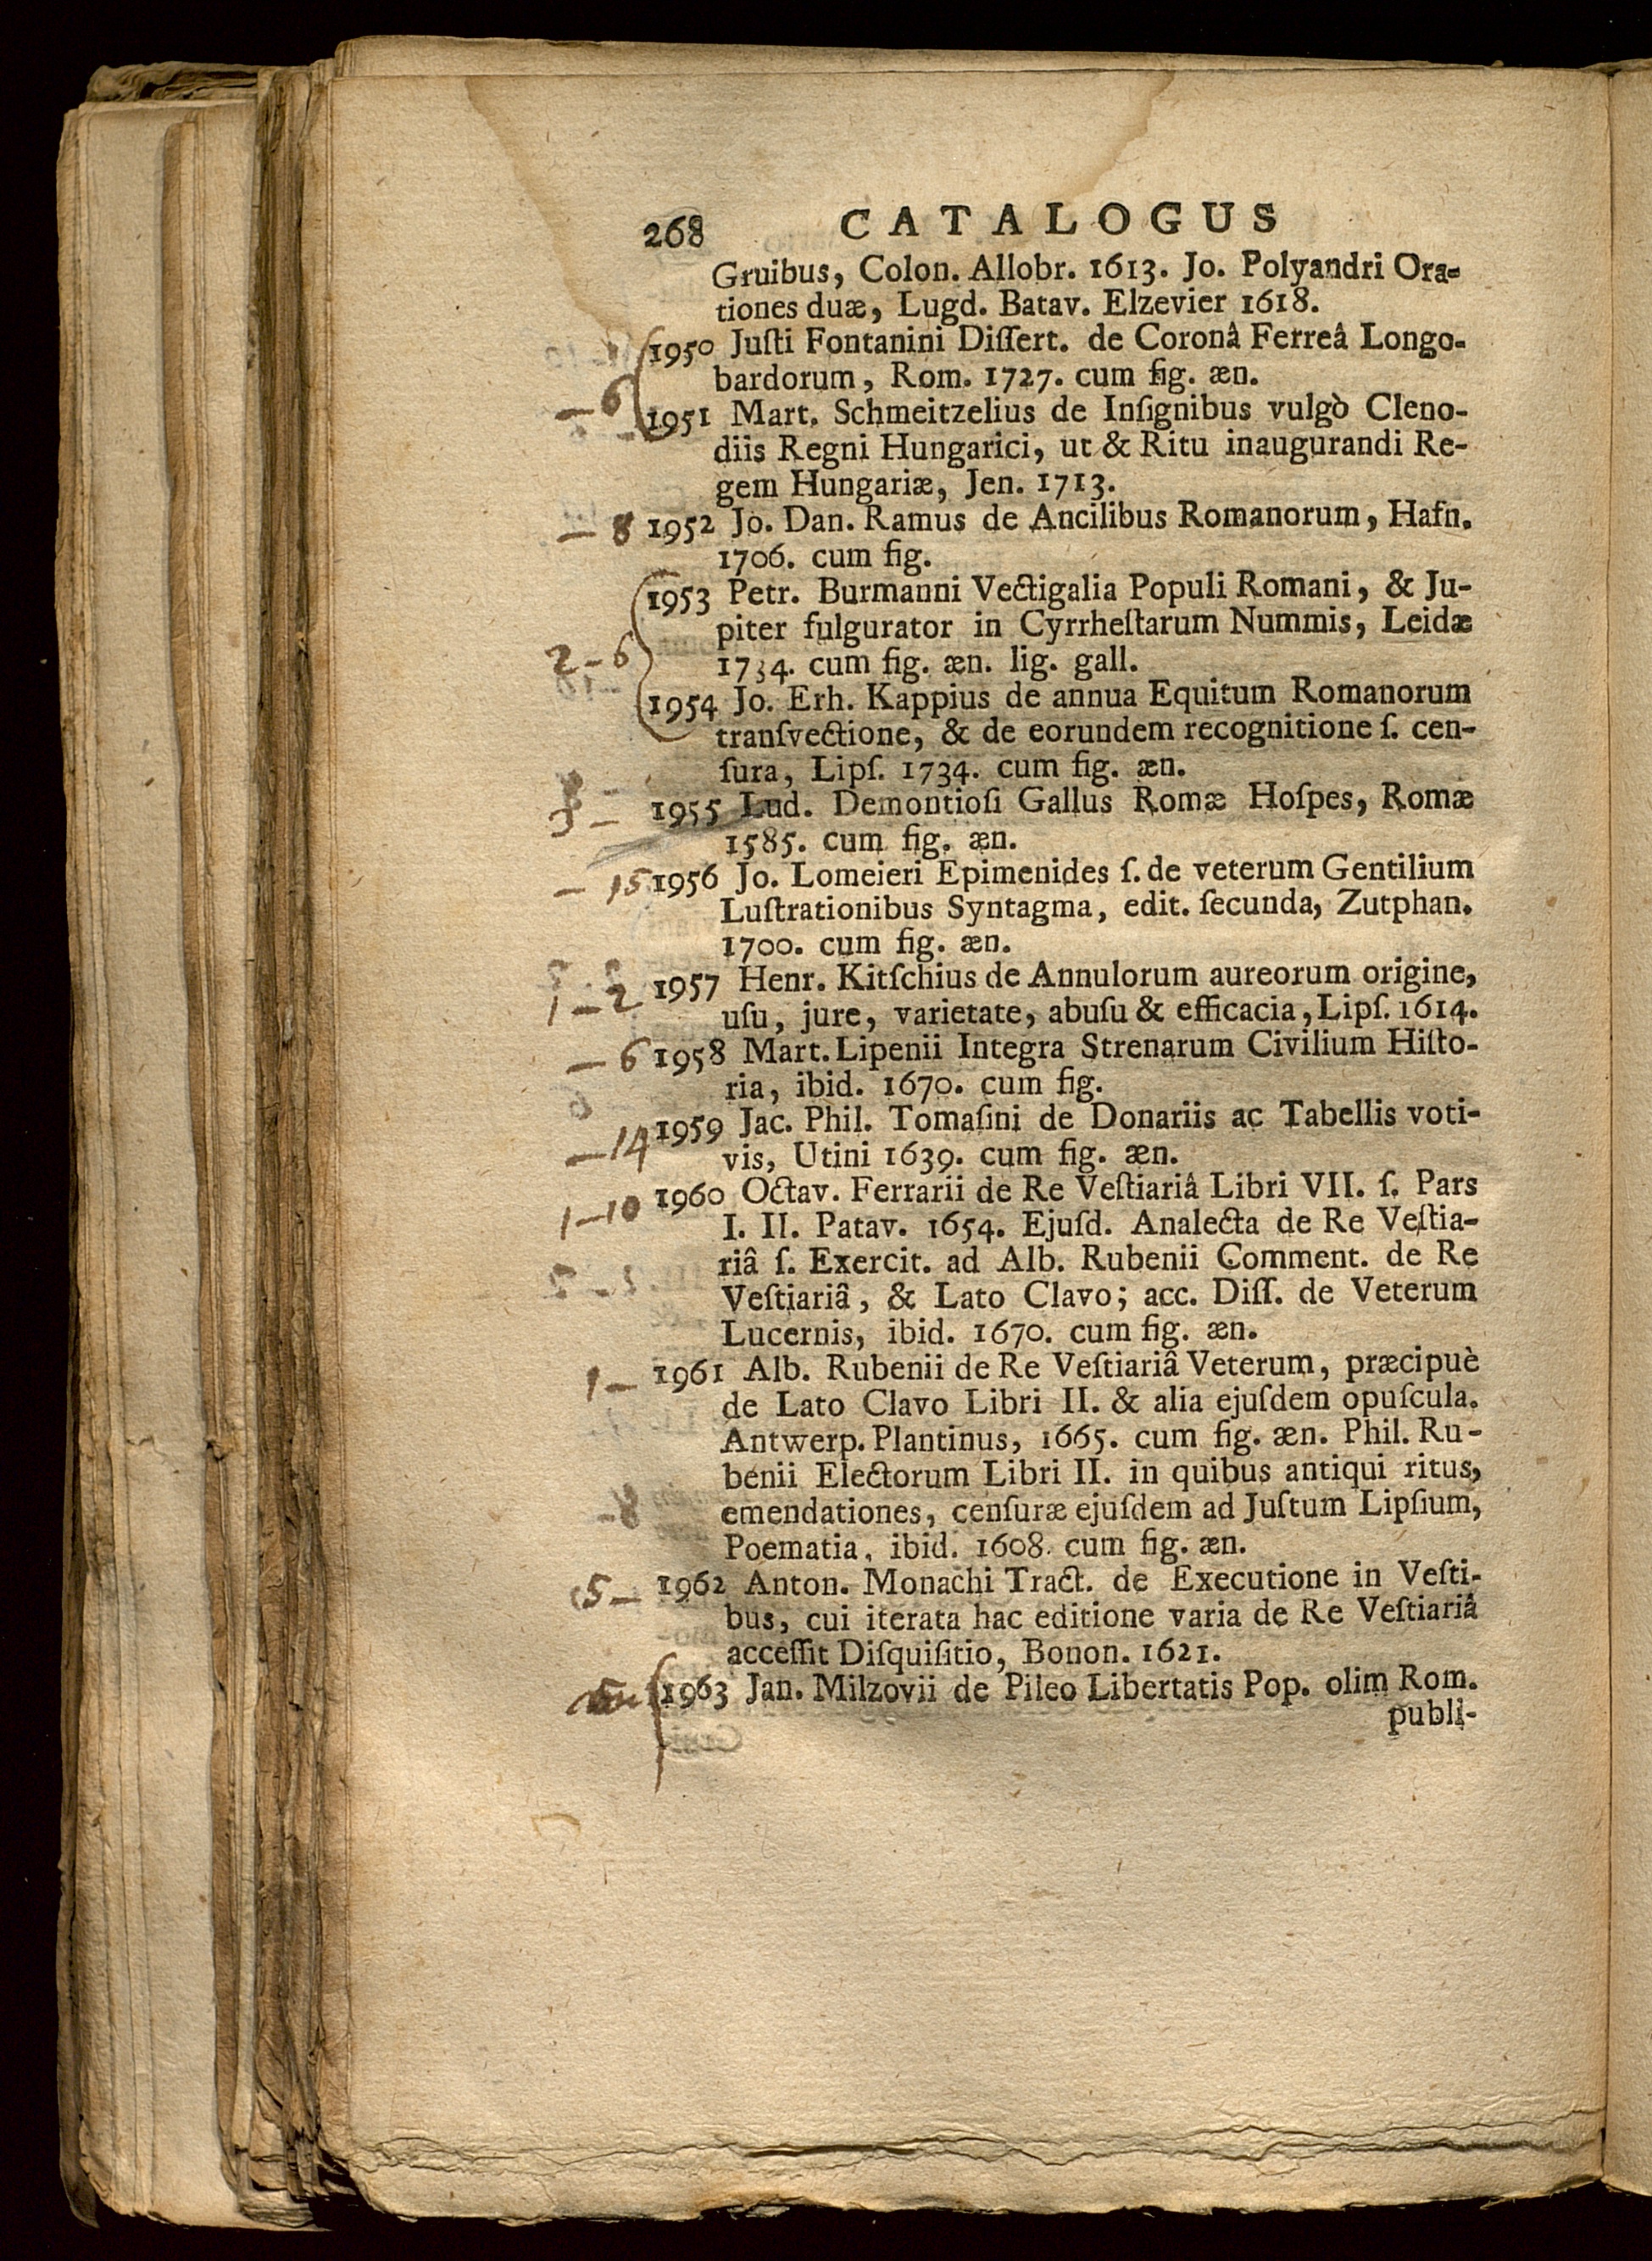 268 CATALOGUS
Gruibus, Colon. Allobr. 1613. Jo. Polyandri Ora-
tiones duæ, Lugd. Batav. Elzevier 1618.
1950 Juſti Fontanini Diſſert. de Coronâ Ferreâ Longo-
bardorum, Rom. 1727. cum fig. æn.
– 6
1951 Mart. Schmeitzelius de Inſignibus vulgò Cleno-
diis Regni Hungarici, ut & Ritu inaugurandi Re-
gem Hungariæ, Jen. 1713.
– 8 1952 Jo. Dan. Ramus de Ancilibus Romanorum, Hafn.
1706. cum fig.
1953 Petr. Burmanni Vectigalia Populi Romani, & Ju-
piter fulgurator in Cyrrheſtarum Nummis, Leidæ
2 – 6 1734. cum fig. æn. lig. gall.
1954 Jo. Erh. Kappius de annua Equitum Romanorum
tranſvectione, & de eorundem recognitione ſ. cen-
ſura, Lipſ. 1734. cum fig. æn.
3 – 1955 Lud. Demontioſi Gallus Romæ Hoſpes, Romæ
1585. cum fig. æn.
– 15 1956 Jo. Lomeieri Epimenides ſ. de veterum Gentilium
Luſtrationibus Syntagma, edit. ſecunda, Zutphan.
1700. cum fig. æn.
1 – 2 1957 Henr. Kitſchius de Annulorum aureorum origine,
uſu, jure, varietate, abuſu & efficacia, Lipſ. 1614.
– 6 1958 Mart. Lipenii Integra Strenarum Civilium Hiſto-
ria, ibid. 1670. cum fig.
– 14 1959 Jac. Phil. Tomaſini de Donariis ac Tabellis voti-
vis, Utini 1639. cum fig. æn.
1 – 10 1960 Octav. Ferrarii de Re Veſtiariâ Libri VII. ſ. Pars
I. II. Patav. 1654. Ejuſd. Analecta de Re Veſtia-
riâ ſ. Exercit. ad Alb. Rubenii Comment. de Re
Veſtiariâ, & Lato Clavo; acc. Diſſ. de Veterum
Lucernis, ibid. 1670. cum fig. æn.
1 – 1961 Alb. Rubenii de Re Veſtiariâ Veterum, præcipuè
de Lato Clavo Libri II. & alia ejuſdem opuſcula.
Antwerp. Plantinus, 1665. cum fig. æn. Phil. Ru-
benii Electorum Libri II. in quibus antiqui ritus,
emendationes, cenſuræ ejuſdem ad Juſtum Lipſium,
Poematia, ibid. 1608. cum fig. æn.
5 – 1962 Anton. Monachi Tract. de Executione in Veſti-
bus, cui iterata hac editione varia de Re Veſtiariâ
acceſſit Diſquiſitio, Bonon. 1621.
1963 Jan. Milzovii de Pileo Libertatis Pop. olim Rom.
publi-